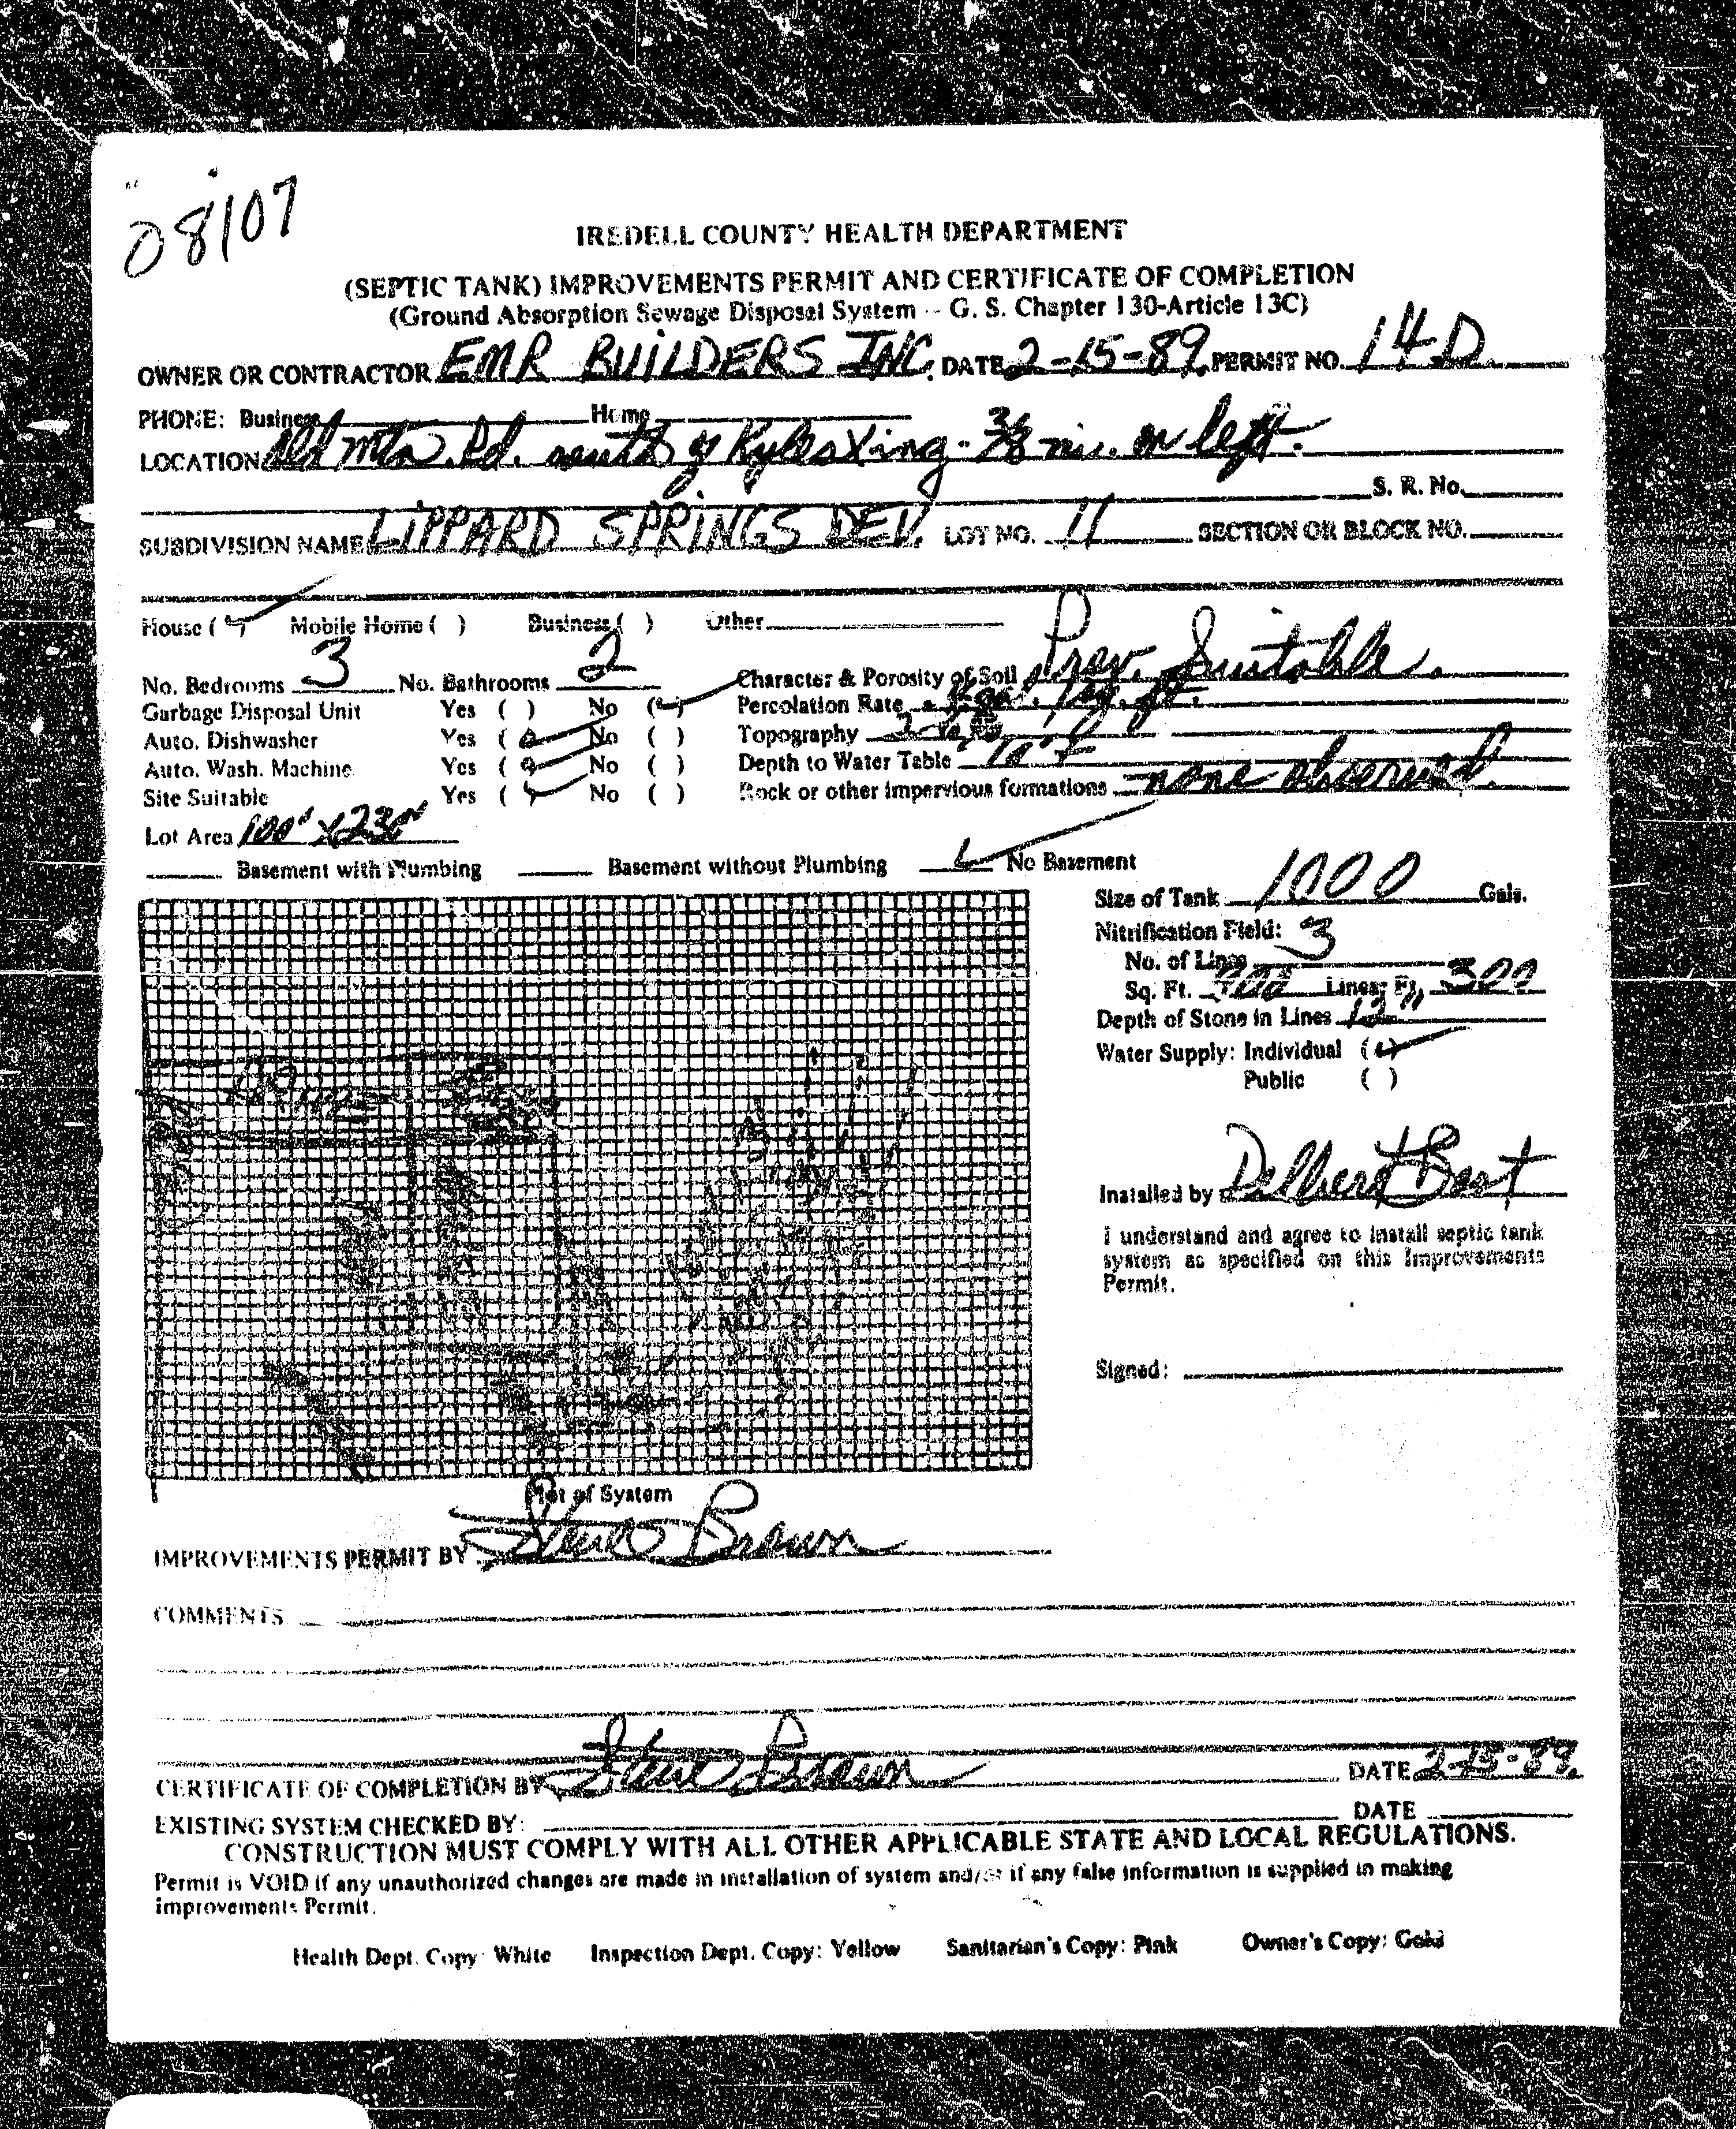 08107
IREDELL COUNTY HEALTH DEPARTMENT
(SEPTIC TANK) IMPROVEMENTS PERMIT AND CERTIFICATE OF COMPLETION
(Ground Absorption Sewage Disposal System -- G. S. Chapter 130-Article 13C)
OWNER OR CONTRACTOR EMR BUILDERS INC. DATE 2-15-89 PERMIT NO. 14D
PHONE: Business Home
LOCATION Old mtn. Rd. south of Kyles Xing - 3/8 mi. on left.
S. R. No.
SUBDIVISION NAME LIPPARD SPRINGS DEV. LOT NO. 11 SECTION OR BLOCK NO.
House (✓) Mobile Home ( ) Business ( ) Other
No. Bedrooms 3 No. Bathrooms 2 Character & Porosity of Soil Prev. Suitable.
Garbage Disposal Unit Yes ( ) No (✓) Percolation Rate gal./sq. ft.
Auto. Dishwasher Yes (✓) No ( ) Topography
Auto. Wash. Machine Yes (✓) No ( ) Depth to Water Table
Site Suitable Yes (✓) No ( ) Rock or other impervious formations none observed.
Lot Area 100' X
Basement with Plumbing Basement without Plumbing ✓ No Basement
Size of Tank 1000 Gals.
Nitrification Field:
No. of Lines 3
Sq. Ft. 900 Linear Ft. 300
Depth of Stone in Lines 12"
Water Supply: Individual (✓)
Public ( )
Installed by Delbert Bost
I understand and agree to install septic tank
system as specified on this Improvements
Permit.
Signed:
Plot of System
IMPROVEMENTS PERMIT BY Steve Brown
COMMENTS
CERTIFICATE OF COMPLETION BY Steve Brown DATE 2-15-89
EXISTING SYSTEM CHECKED BY: DATE
CONSTRUCTION MUST COMPLY WITH ALL OTHER APPLICABLE STATE AND LOCAL REGULATIONS.
Permit is VOID if any unauthorized changes are made in installation of system and/or if any false information is supplied in making
improvements Permit.
Health Dept. Copy: White Inspection Dept. Copy: Yellow Sanitarian's Copy: Pink Owner's Copy: Gold